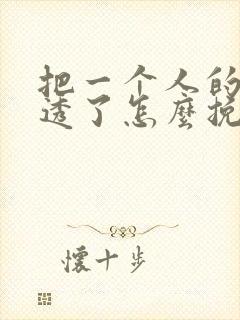 把一个人的
透了怎麼挽
懷十步